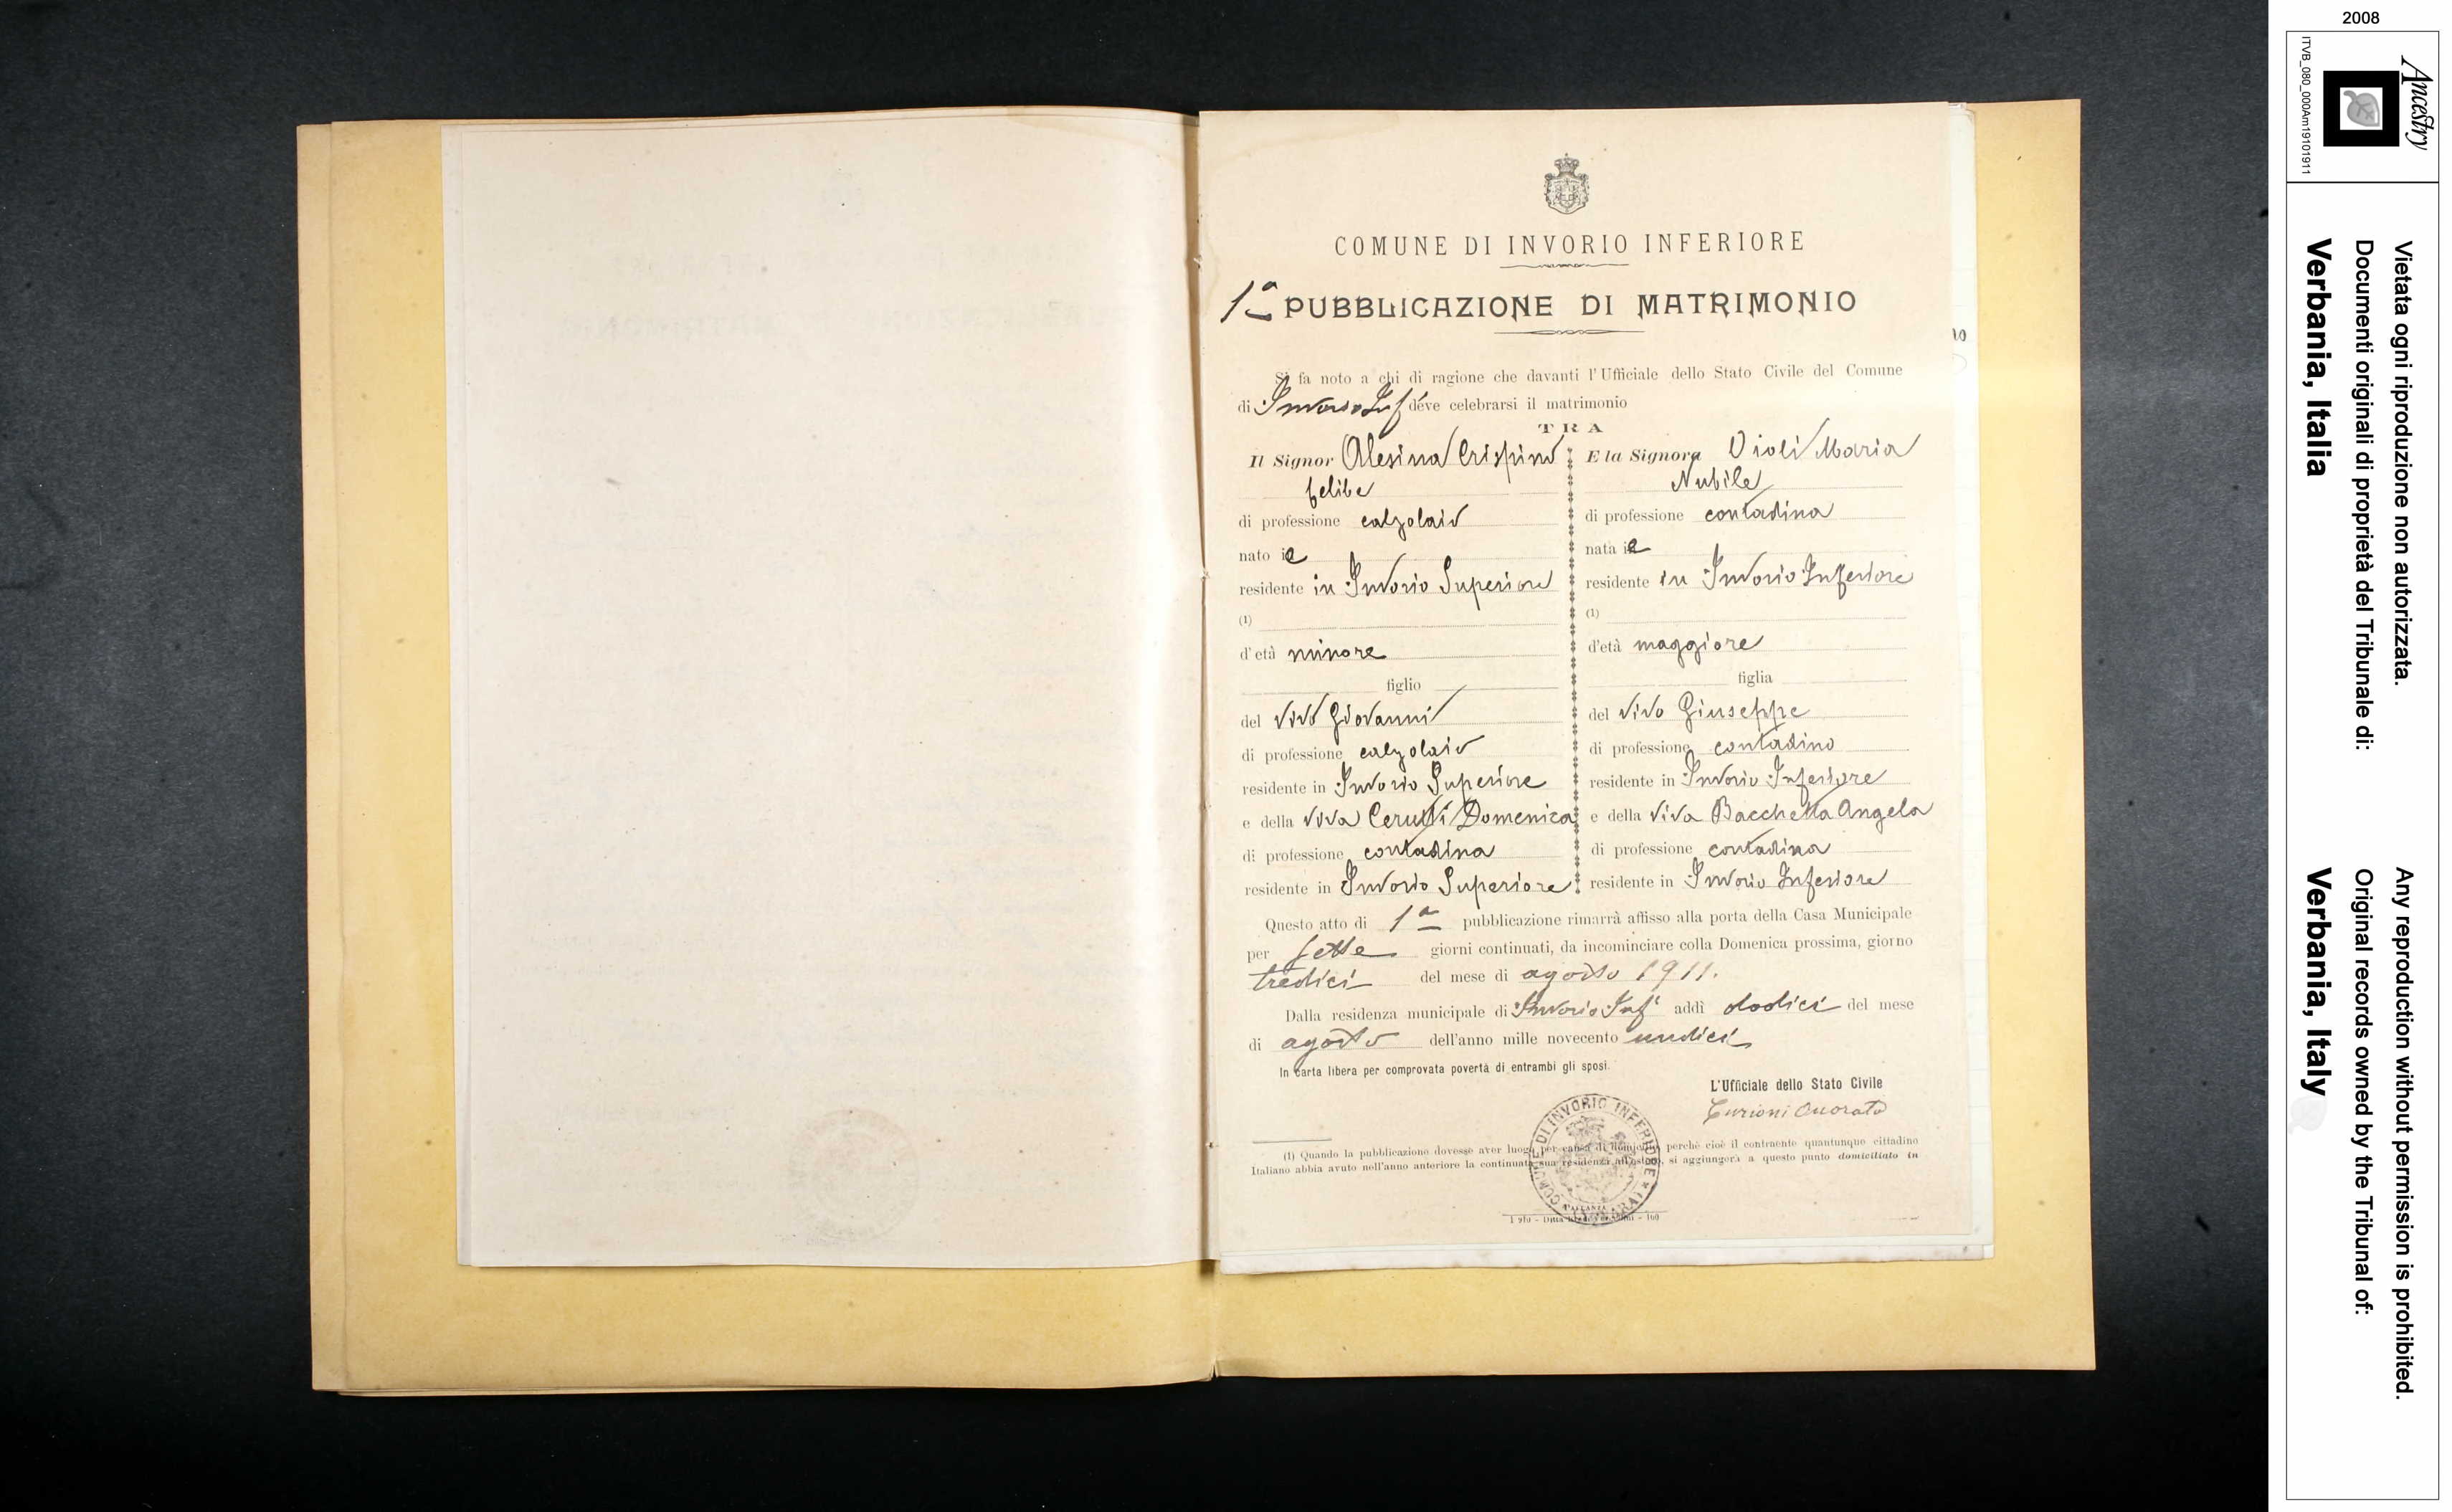 COMUNE DI INVORIO INFERIORE
1ª PUBBLICAZIONE DI MATRIMONIO
Si fa noto a chi di ragione che davanti l'Ufficiale dello Stato Civile del Comune
di Invorio Inf deve celebrarsi il matrimonio
TRA
Il Signor Alesina Crispino
celibe
di professione calzolaio
nato i e
residente in Invorio Superiore
(1)
d'età minore
figlio
del vivo Giovanni
di professione calzolaio
residente in Invorio Superiore
e della viva Cerutti Domenica
di professione contadina
residente in Invorio Superiore
E la Signora Violi Maria
Nubile
di professione contadina
nata i e
residente in Invorio Inferiore
(1)
d'età maggiore
figlia
del vivo Giuseppe
di professione contadino
residente in Invorio Inferiore
e della viva Bacchetta Angela
di professione contadina
residente in Invorio Inferiore
Questo atto di 1ª pubblicazione rimarrà affisso alla porta della Casa Municipale
per sette giorni continuati, da incominciare colla Domenica prossima, giorno
tredici del mese di agosto 1911.
Dalla residenza municipale di Invorio Inf addì dodici del mese
di agosto dell'anno mille novecento undici
In carta libera per comprovata povertà di entrambi gli sposi.
L'Ufficiale dello Stato Civile
Curioni Onorato
(1) Quando la pubblicazione dovesse aver luogo per causa di domicilio, perchè cioè il contraente quantunque cittadino
Italiano abbia avuto nell'anno anteriore la continuata sua residenza all'estero, si aggiungerà a questo punto domiciliato in
COMUNE DI INVORIO INFERIORE
2008
Ancestry
ITVB_080_000Am19101911
Vietata ogni riproduzione non autorizzata.
Documenti originali di proprietà del Tribunale di:
Verbania, Italia
Any reproduction without permission is prohibited.
Original records owned by the Tribunal of:
Verbania, Italy